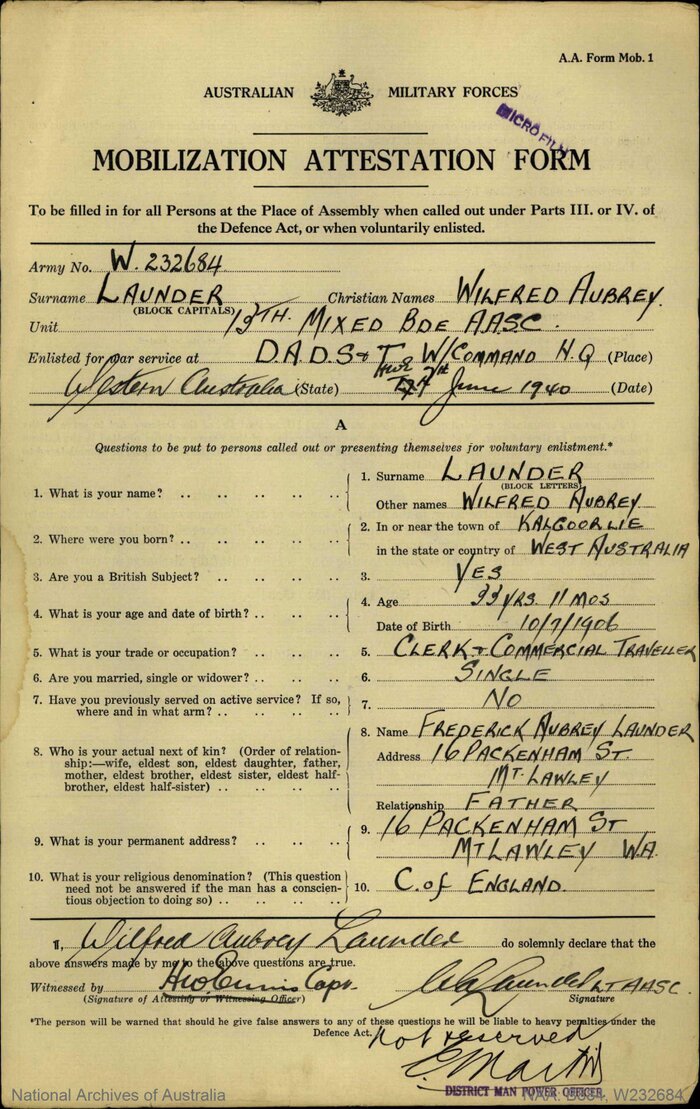 A.A. Form Mob. 1
AUSTRALIAN MILITARY FORCES
MICROFILM
MOBILIZATION ATTESTATION FORM
To be filled in for all Persons at the Place of Assembly when called out under Parts III. or IV. of
the Defence Act, or when voluntarily enlisted.
Army No. W. 232684
Surname LAUNDER Christian Names WILFRED AUBREY.
(BLOCK CAPITALS)
Unit 13TH. MIXED BDE A.A.S.C.
Enlisted for war service at D.A.D.S & T W/COMMAND H.Q (Place)
Western Australia (State) 7th June 1940 (Date)
A
Questions to be put to persons called out or presenting themselves for voluntary enlistment.*
1. What is your name? .. .. .. .. .. 1. Surname LAUNDER
(BLOCK LETTERS)
Other names WILFRED AUBREY
2. Where were you born? .. .. .. .. .. 2. In or near the town of KALGOORLIE
in the state or country of WEST AUSTRALIA
3. Are you a British Subject? .. .. .. .. 3. YES
4. What is your age and date of birth? .. .. .. 4. Age 33 YRS. 11 MOS
Date of Birth 10/7/1906
5. What is your trade or occupation? .. .. .. 5. CLERK & COMMERCIAL TRAVELLER
6. Are you married, single or widower? .. .. .. 6. SINGLE
7. Have you previously served on active service? If so,
where and in what arm? .. .. .. .. 7. NO
8. Who is your actual next of kin? (Order of relation-
ship:—wife, eldest son, eldest daughter, father,
mother, eldest brother, eldest sister, eldest half-
brother, eldest half-sister) .. .. .. ..
8. Name FREDERICK AUBREY LAUNDER
Address 16 PACKENHAM ST.
MT. LAWLEY
Relationship FATHER
9. What is your permanent address? .. .. .. 9. 16 PACKENHAM ST
MT LAWLEY W.A.
10. What is your religious denomination? (This question
need not be answered if the man has a conscien-
tious objection to doing so) .. .. .. .. 10. C. of ENGLAND.
I, Wilfred Aubrey Launder do solemnly declare that the
above answers made by me to the above questions are true.
Witnessed by Capt. Launder LT AASC.
(Signature of Attesting or Witnessing Officer) Signature
*The person will be warned that should he give false answers to any of these questions he will be liable to heavy penalties under the
Defence Act.
not reserved
E Martin
DISTRICT MAN POWER OFFICER
National Archives of Australia NAA: B884, W232684